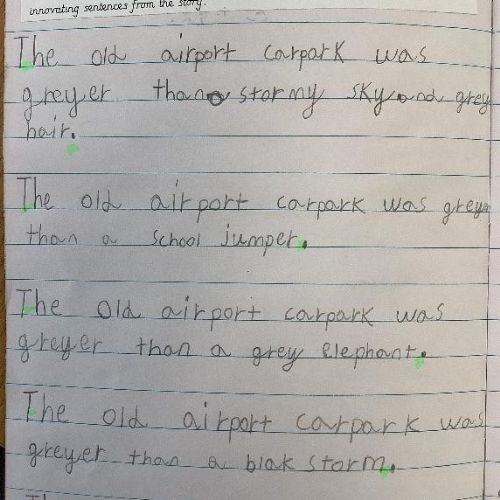 innovating sentences from the story.
The old airport carpark was
greyer than a stormy sky and grey
hair.
The old airport carpark was greyer
than a school jumper.
The old airport carpark was
greyer than a grey elephant.
The old airport carpark was
greyer than a blak storm.